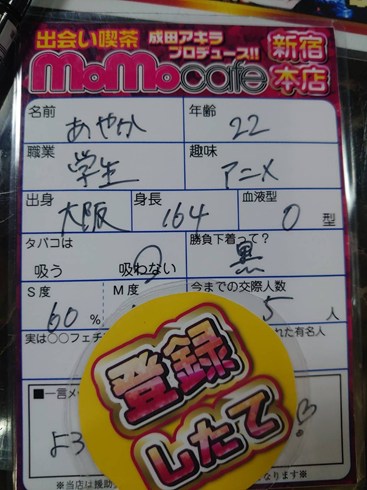 出会い喫茶 成田アキラ プロデュース!! 新宿本店
MoMocafe
名前 あやか 年齢 22
職業 学生 趣味 アニメ
出身 大阪 身長 164 血液型 O 型
タバコは 吸う 吸わない 勝負下着って? 黒
S度 60 % M度 今までの交際人数 5 人
実は○○フェチ れた有名人
登録
したて
■一言メ
よろ
※当店は援助 なります※